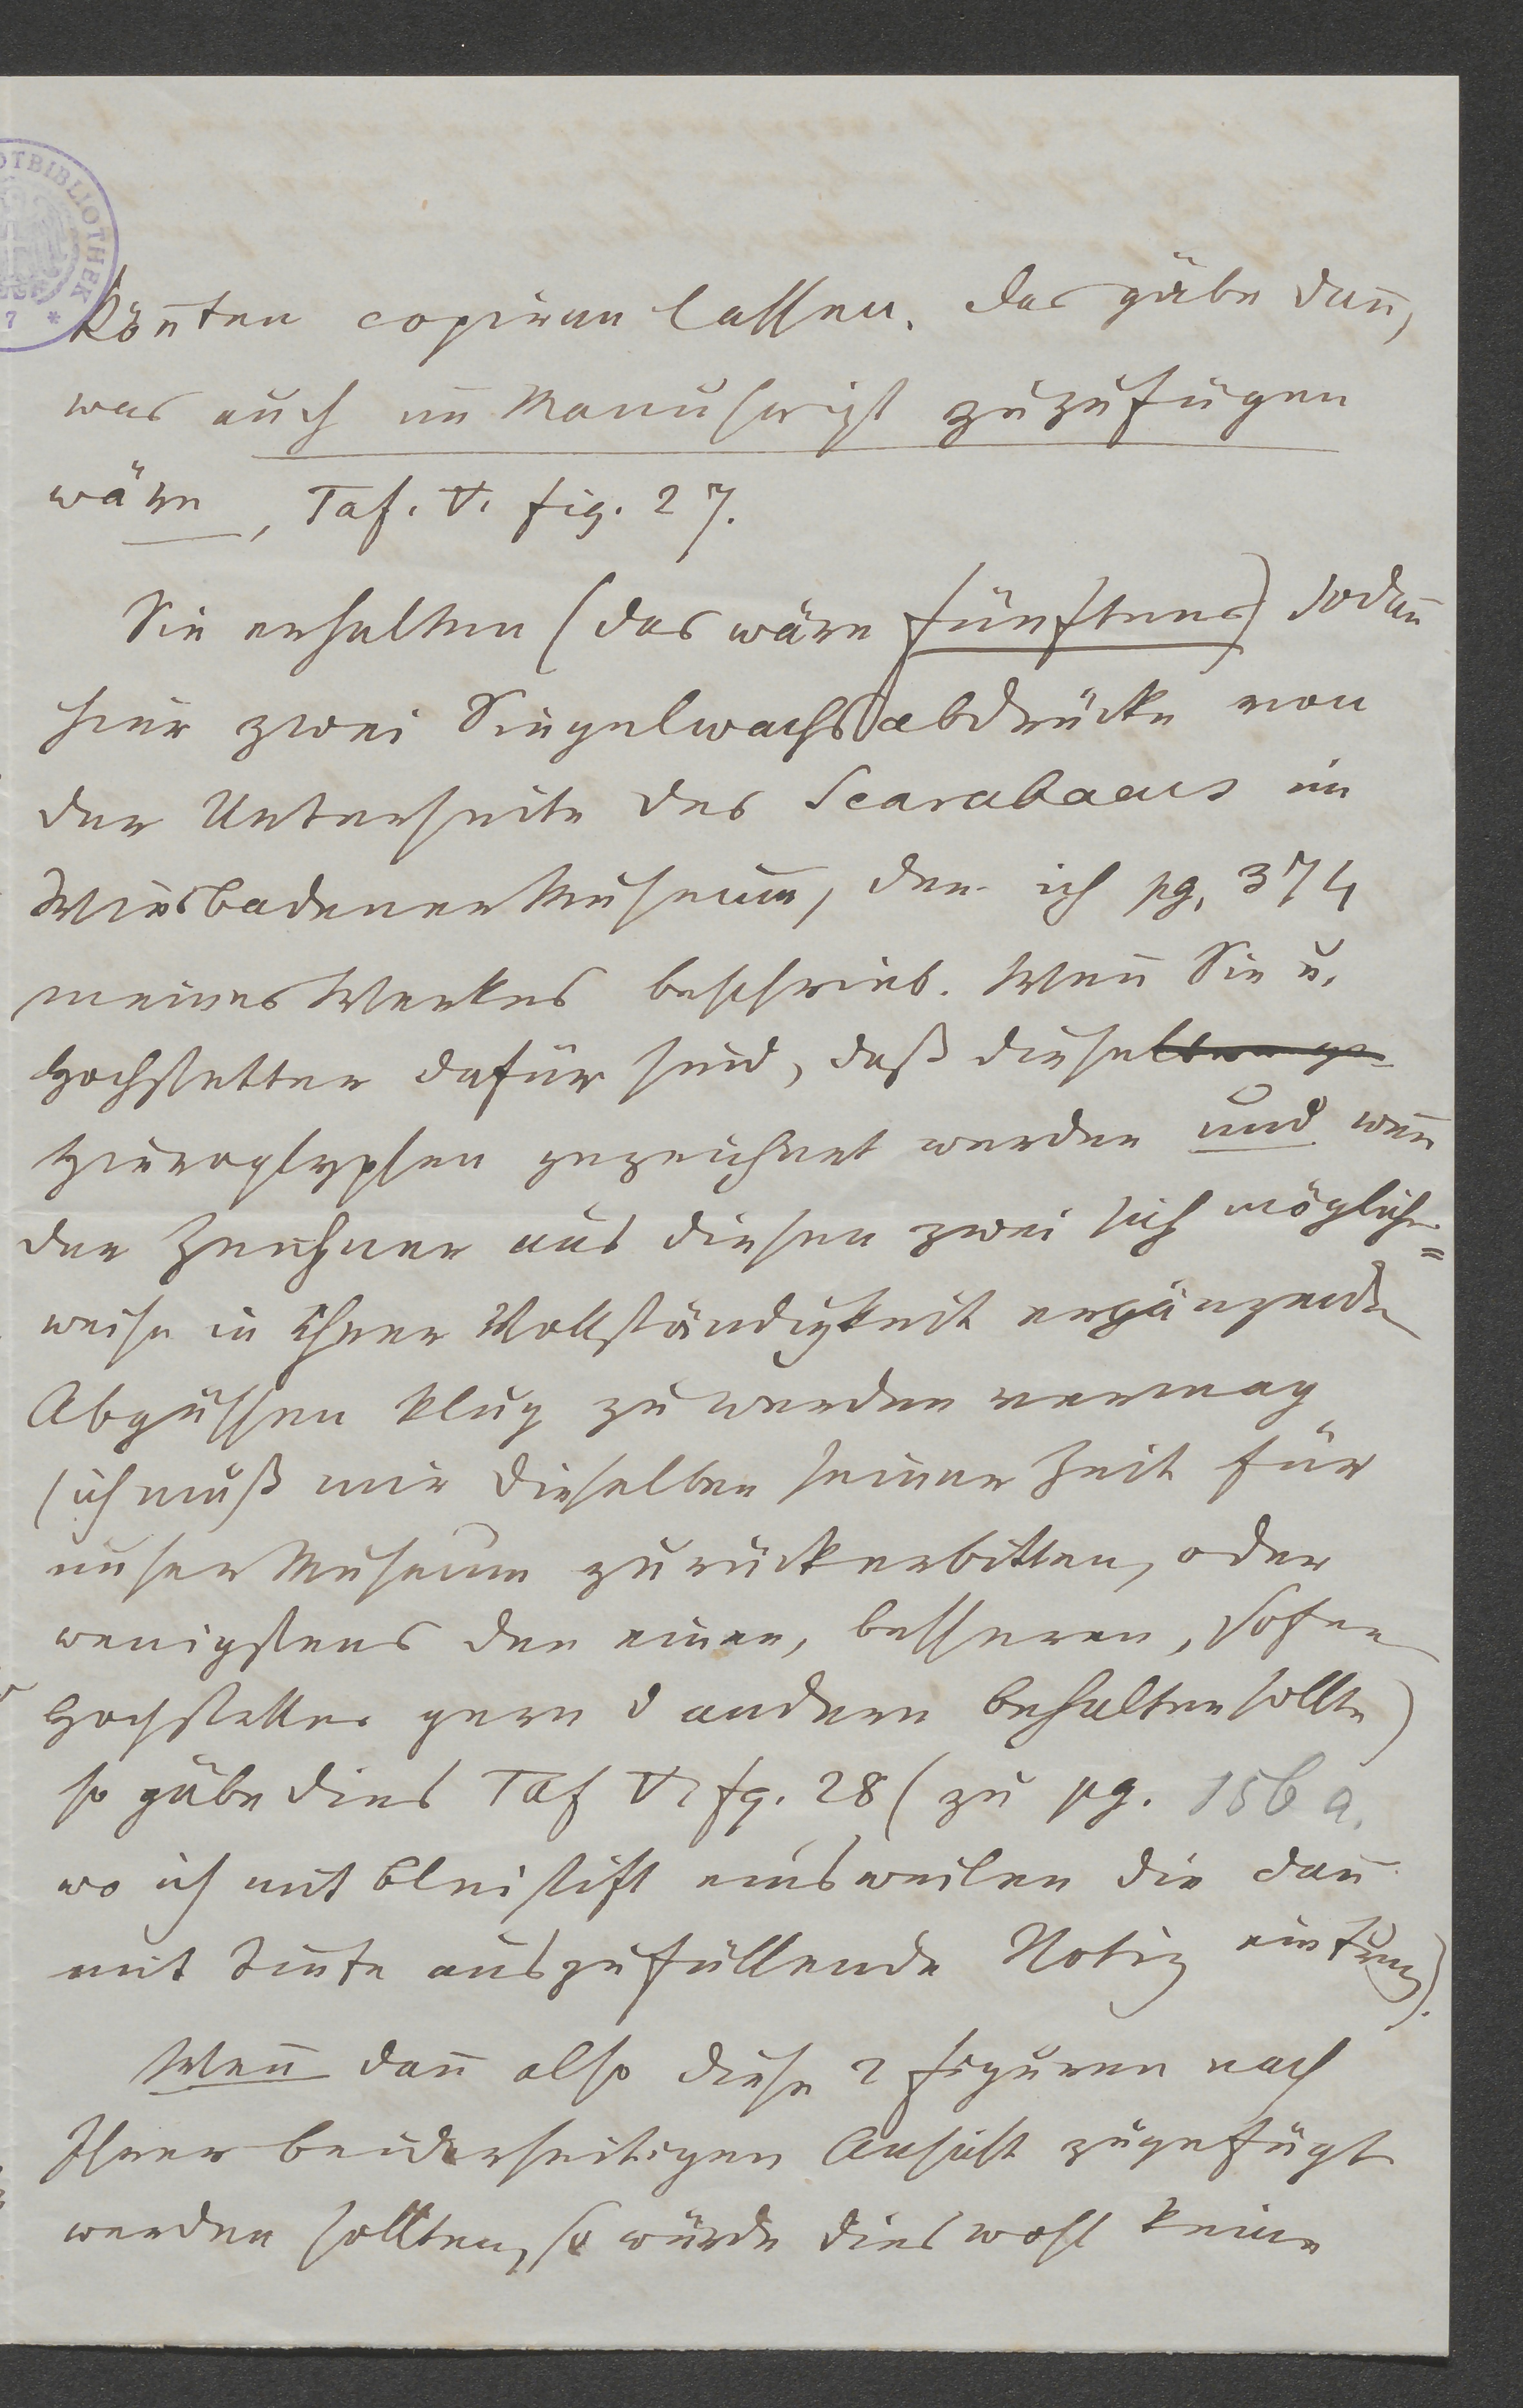 OTBIBLIOTHEK
7 *
kön̄ten copiren lassen. Das gäbe dan̄,
was auch im Manuscript zuzufügen
wäre, Taf. V. fig. 27.
Sie erhalten (das wäre fünftens) sodan̄
hier zwei Siegelwachsabdrücke von
der Unterseite des Scarabaeus im
Wiesbadener Museum, den ich pg. 374
meines Werkes beschrieb. Wen̄ Sie u.
Hochstetter dafür sind, daß diese
Hieroglyphen gezeichnet werden und wen̄
der Zeichner aus diesen zwei sich möglicher=
weise in ihrer Vollständigkeit ergänzenden
Abgüssen klug zu werden vermag
(ich muß mir dieselben seiner Zeit für
unser Museum zurückerbitten, oder
wenigstens den einen, besseren, sofern
Hochstetter gern d andern behalten sollte)
so gäbe dies Taf V. fg. 28 (zu pg. 156 a.
wo ich mit Bleistift einsweilen die dan̄
mit Tinte auszufüllende Notiz eintrug).
Wen̄ dan̄ also diese 2 Figuren nach
Ihrer beiderseitigen Ansicht zugefügt
werden sollten, so würde dies wohl keine